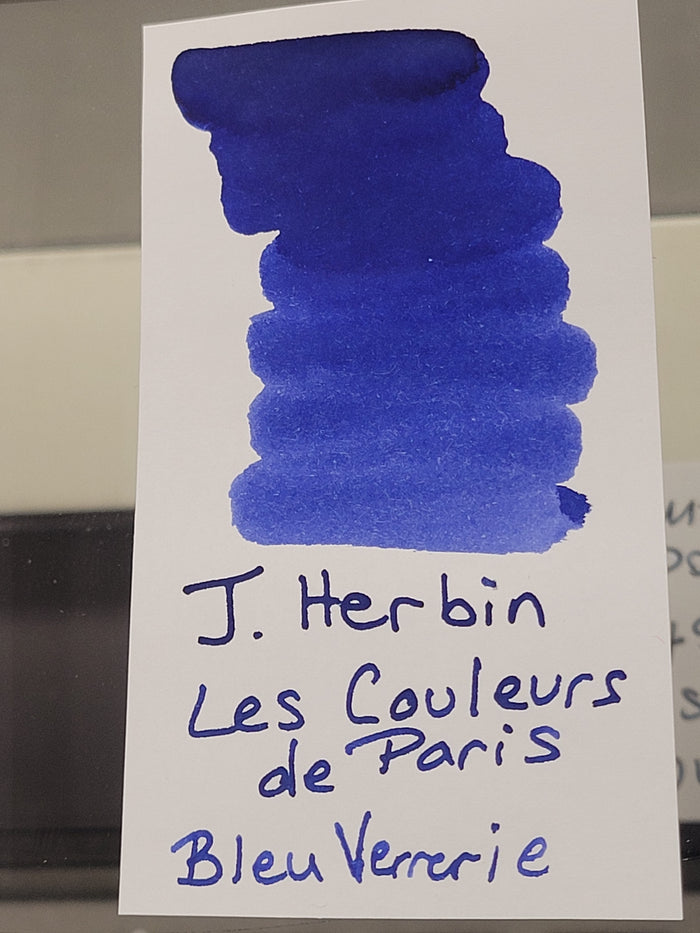 J. Herbin
Les Couleurs
de Paris
Bleu Verrerie